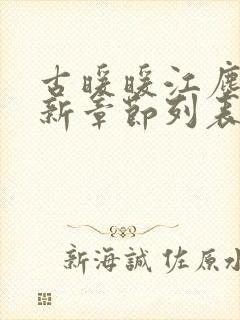 古暖暖江塵
新章節列表
新海誠 佐原水